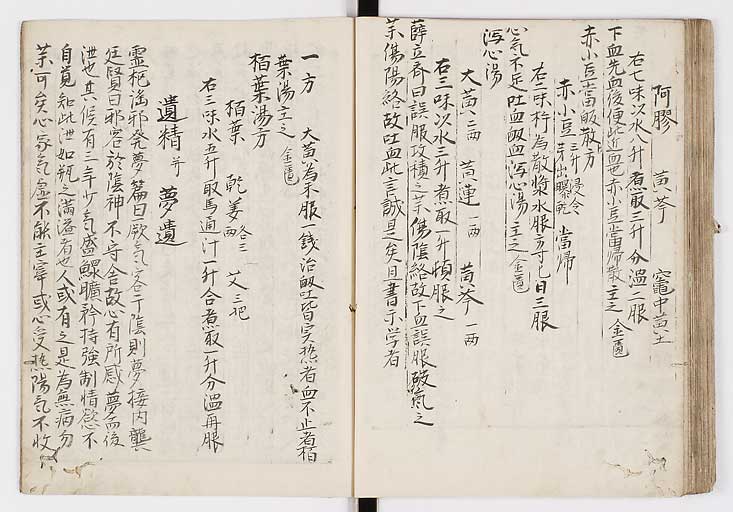 阿膠 黄芩 竈中黄土
右七味以水八升煮取三升分温二服
下血先血後便此近血也赤小豆當帰散主之 金匱
赤小豆當皈散方
赤小豆 三升浸令芽出曝乾 當帰
右二味杵為散漿水服方寸匕日三服
心気不足吐血衂血瀉心湯主之 金匱
瀉心湯
大黄 二両 黄連 一両 黄芩 一両
右三味以水三升煮取一升頓服之
薛立斉曰誤服攻積之薬傷陰絡故下血誤服破気之
薬傷陽絡故吐血此言誠是矣因書示学者
一方 大黄為末服一銭治衂吐皆実熱者血不止者栢
葉湯主之 金匱
栢葉湯方
栢葉 乾姜 各三両 艾 三把
右三味水五升取馬通汁一升合煮取一升分温再服
遺精 并 夢遺
霊枢淫邪発夢篇曰厥気客于陰則夢接内龔
廷賢曰邪客於陰神不守舎故心有所感夢而後
泄也其候有三年少気盛鰥曠矜持強制情慾不
自覚知此泄如瓶之満溢者也人或有之是為無病勿
薬可矣心家気虚不能主宰或心受熱陽気不收